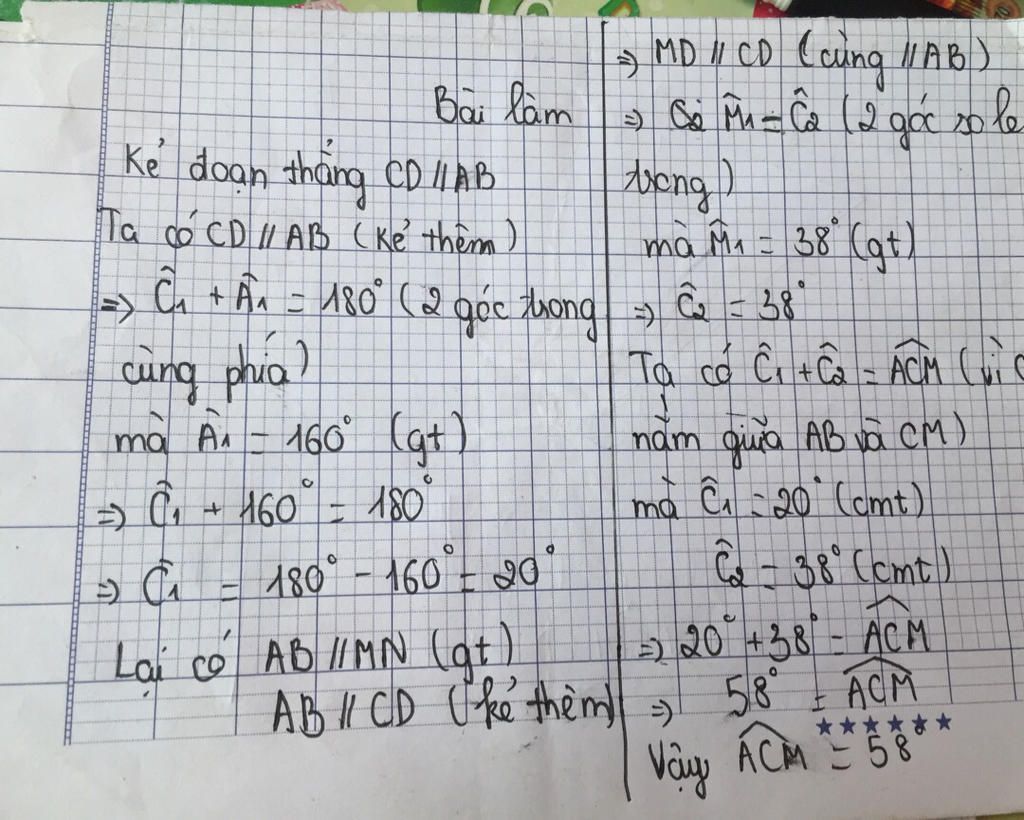 Bài làm
Kẻ đoạn thẳng CD // AB
Ta có CD // AB (kẻ thêm)
=> Ĉ1 + Â1 = 180° (2 góc trong
cùng phía)
mà Â1 = 160° (gt)
=> Ĉ1 + 160° = 180°
=> Ĉ1 = 180° - 160° = 20°
Lại có AB // MN (gt)
AB // CD (kẻ thêm)
=> MD // CD (cùng // AB)
=> Có M̂1 = Ĉ2 (2 góc so le
trong)
mà M̂1 = 38° (gt)
=> Ĉ2 = 38°
Ta có Ĉ1 + Ĉ2 = ACM (vì
nằm giữa AB và CM)
mà Ĉ1 = 20° (cmt)
Ĉ2 = 38° (cmt)
=> 20° + 38° = ACM
=> 58° = ACM
Vậy ACM = 58°